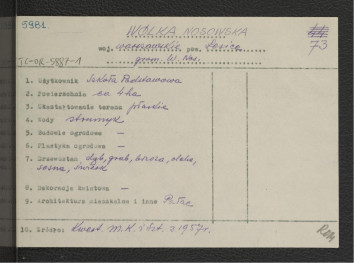 5981
WÓLKA NOSOWSKA
woj. warszawskie pow. Łosice
73
grom. W. Nos.
1. Użytkownik Szkoła Podstawowa
2. Powierzchnia ca 4 ha
3. Ukształtowanie terenu płaskie
4. Wody strumyk
5. Budowle ogrodowe —
6. Plastyka ogrodowa —
7. Drzewostan dąb, grab, brzoza, olcha,
sosna, świerk
8. Dekoracje kwiatowe —
9. Architektura mieszkalna i inne Pałac
10. Źródło: Kwest. M.K. i Szt. z 1957 r.